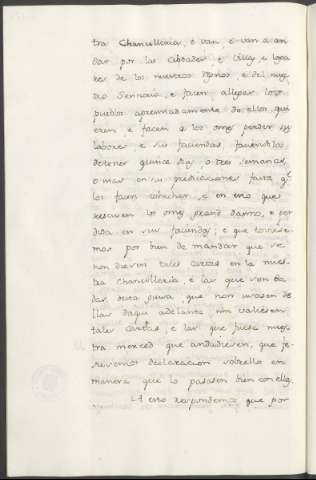 tra Chancilleria, e van, e van a an
dar por las Cibdades, e Villas, e Loga
res de los nuestros Rgnos e del nues
tro Sennorio, e facen allegar los
pueblos apremiadamente do ellos qui
eren, e facen a los omes perder sus
labores e sus faciendas, faciendolos
detener quince dias, o tres semanas,
o mas en sus predicaciones fasta qe
los facen cohechar, e en esto que
resciven los omes grand danno, e per
dida en sus faciendas; e que toviese
mos por bien de mandar que se
non diesen tales cartas en la nues
tra Chancilleria, e las que son da
das fasta aqui, que non usasen de
llas daqui adelante nin valiesen
tales cartas, e las que fuese nues
tra merced que andudiesen, que fe
ciesemos declaracion sobrello en
manera que lo pasasen bien con ellas
A esto respondemos que por